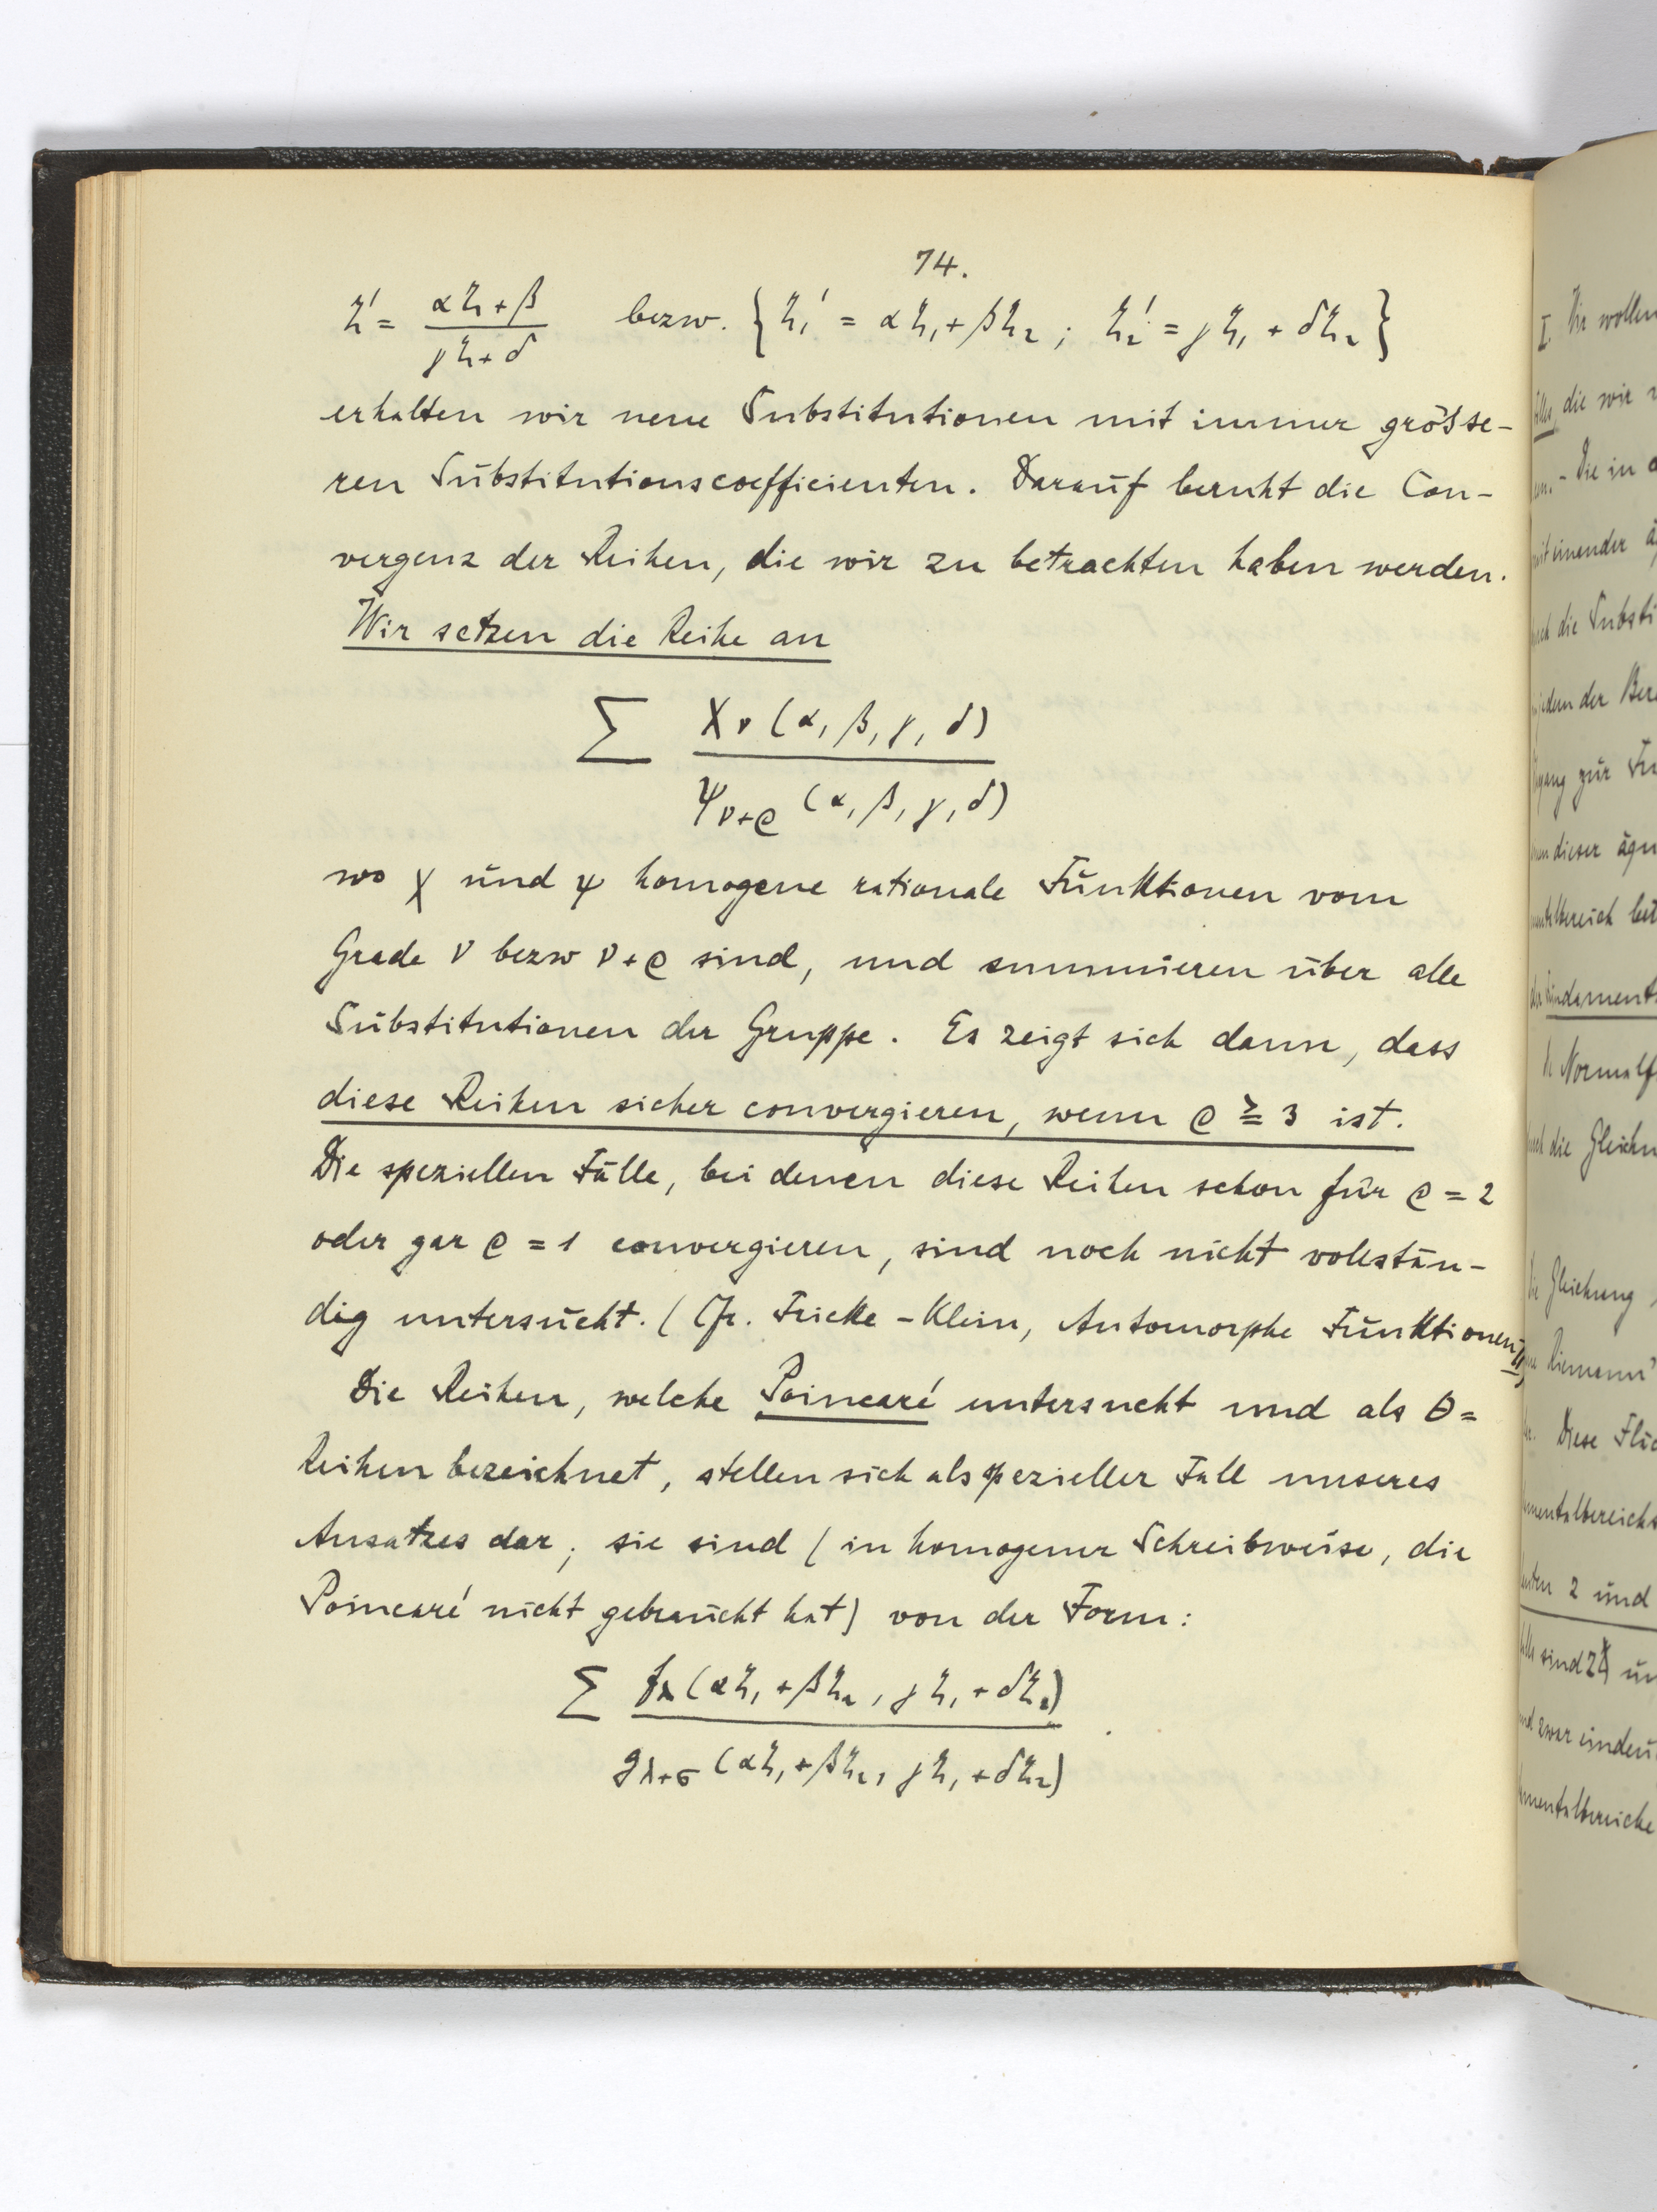 74.
ζ' = (αζ + β)/(γζ + δ) bezw. {ζ₁' = αζ₁ + βζ₂ ; ζ₂' = γζ₁ + δζ₂}
erhalten wir neue Substitutionen mit immer grösse-
ren Substitutionscoefficienten. Darauf beruht die Con-
vergenz der Reihen, die wir zu betrachten haben werden.
Wir setzen die Reihe an
∑ χ_ν (α, β, γ, δ)
ψ_ν+ρ (α, β, γ, δ)
wo χ und ψ homogene rationale Funktionen vom
Grade ν bezw ν+ρ sind, und summieren über alle
Substitutionen der Gruppe. Es zeigt sich dann, dass
diese Reihen sicher convergieren, wenn ρ ≧ 3 ist.
Die speziellen Fälle, bei denen diese Reihen schon für ρ = 2
oder gar ρ = 1 convergieren, sind noch nicht vollstän-
dig untersucht. (Cfr. Fricke-Klein, Automorphe Funktionen II)
Die Reihen, welche Poincaré untersucht und als Θ=
Reihen bezeichnet, stellen sich als spezieller Fall unseres
Ansatzes dar; sie sind (in homogener Schreibweise, die
Poincaré nicht gebraucht hat) von der Form:
∑ f_λ (αζ₁ + βζ₂, γζ₁ + δζ₂)
g_λ+σ (αζ₁ + βζ₂, γζ₁ + δζ₂) .
I. Wir wollen
die wir
Die in
mit einander
durch die Substi
der Bere
gang zur Fu
dieser äqu
Fundament
Normalf
die Gleichu
Die Gleichung
Riemann'
Diese Flä
mentalbereichs
2 und
sind 24 un
und zwar eindeu
mentalbereiche